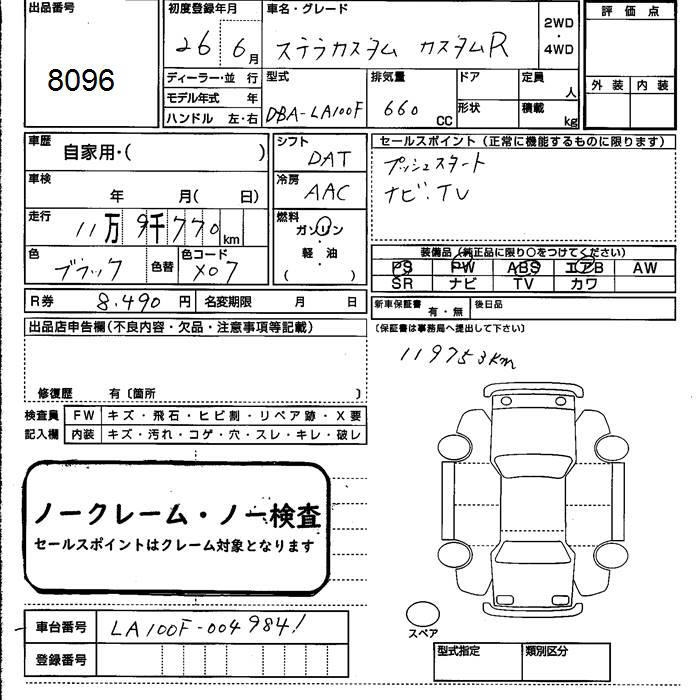 出品番号
8096
初度登録年月
26 6月
車名・グレード
ステラカスタム カスタムR
2WD
・
4WD
評価点
外装 内装
ディーラー・並行
モデル年式 年
ハンドル 左・右
型式
DBA-LA100F
排気量
660 CC
ドア
形状
定員
人
積載
kg
車歴
自家用・( )
車検
年 月( 日)
走行
11万9千770km
色
ブラック
色替
色コード
X07
シフト
DAT
冷房
AAC
燃料
ガソリン
・
軽・油
( )
セールスポイント(正常に機能するものに限ります)
プッシュスタート
ナビ.TV
装備品(純正品に限り〇をつけてください)
PS PW ABS エアB AW
SR ナビ TV カワ
R券 8.490円 名変期限 月 日
新車保証書 有・無 後日品
(保証書は事務局へ提出して下さい)
出品店申告欄(不良内容・欠品・注意事項等記載)
119753km
修復歴 有〔箇所 〕
検査員 FW キズ・飛石・ヒビ割・リペア跡・X要
記入欄 内装 キズ・汚れ・コゲ・穴・スレ・キレ・破レ
ノークレーム・ノー検査
セールスポイントはクレーム対象となります
車台番号 LA100F-0049841
登録番号
スペア
型式指定 類別区分